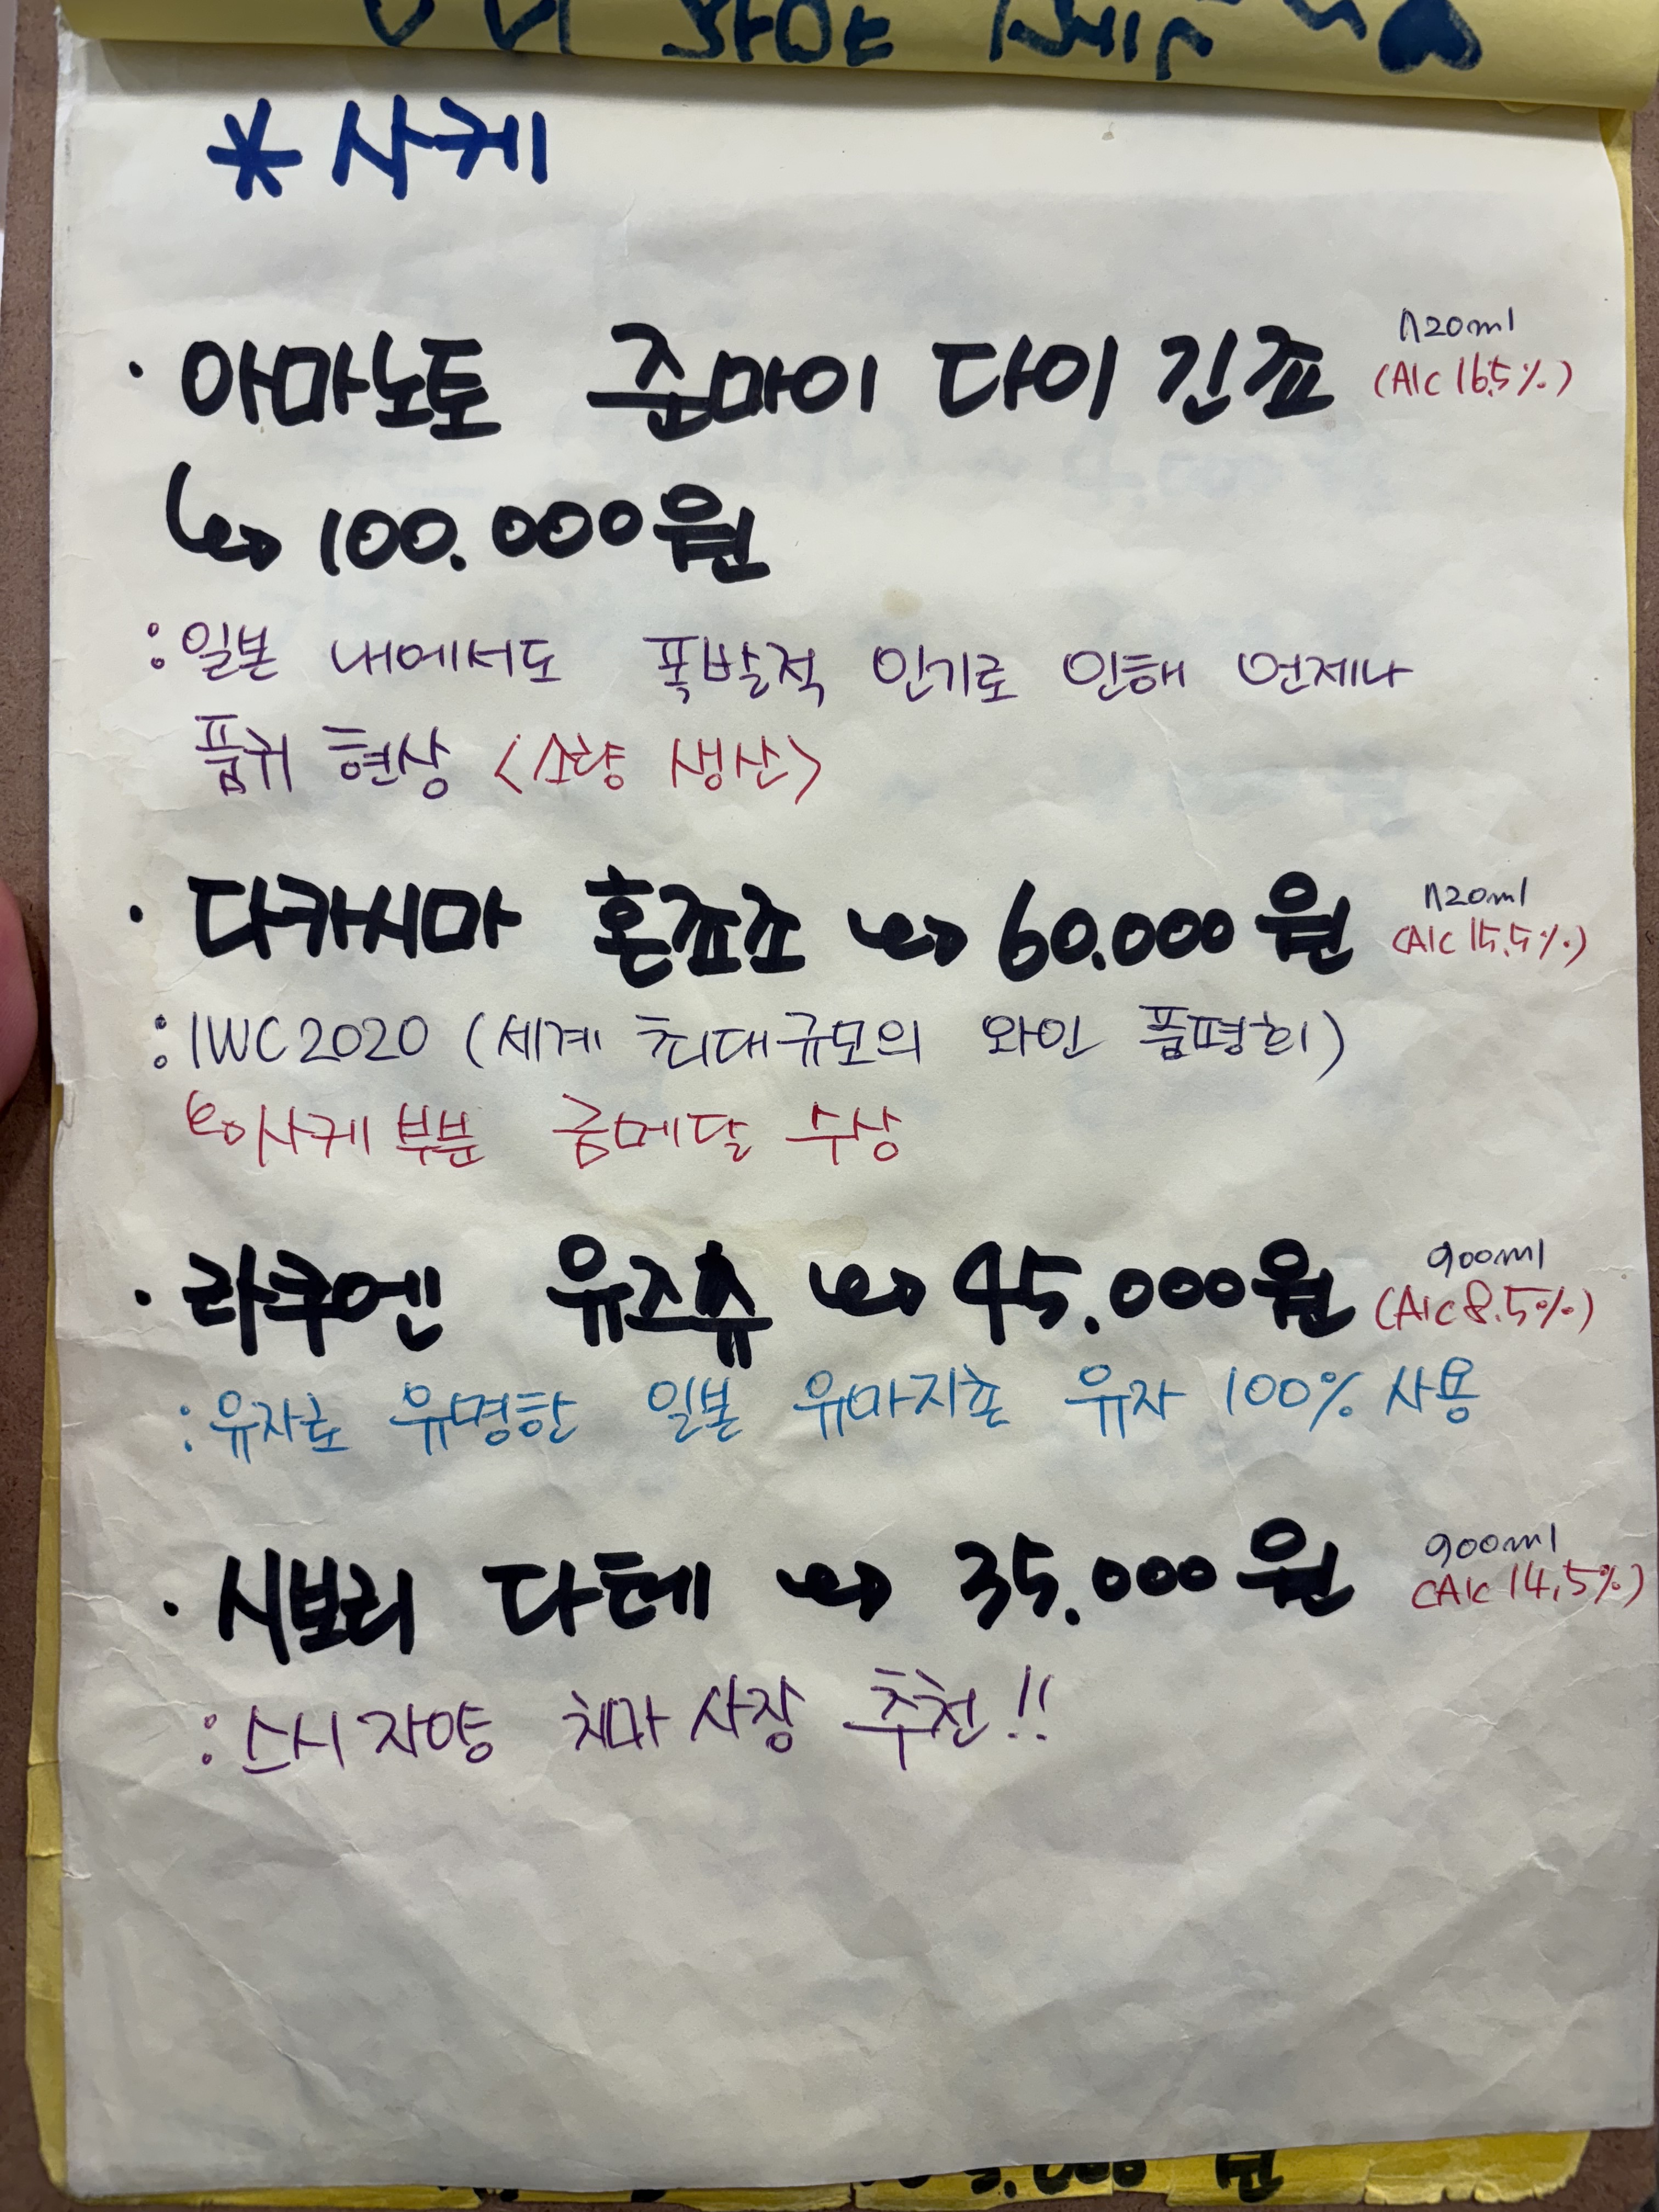 * 사케
· 아마노토 준마이 다이 긴죠 720ml (Alc 16.5%)
↳ 100.000원
: 일본 내에서도 폭발적 인기로 인해 언제나
품귀 현상 <소량 생산>
· 다카시마 혼죠조 → 60.000원 720ml (Alc 15.5%)
: IWC2020 (세계 최대규모의 와인 품평회)
↳ 사케 부분 금메달 수상
· 라쿠엔 유즈츄 → 45.000원 900ml (Alc 8.5%)
: 유자로 유명한 일본 유마지촌 유자 100% 사용
· 시보리 다테 → 35.000원 900ml (Alc 14.5%)
: 스시 자양 치마 사장 추천!!
000 원